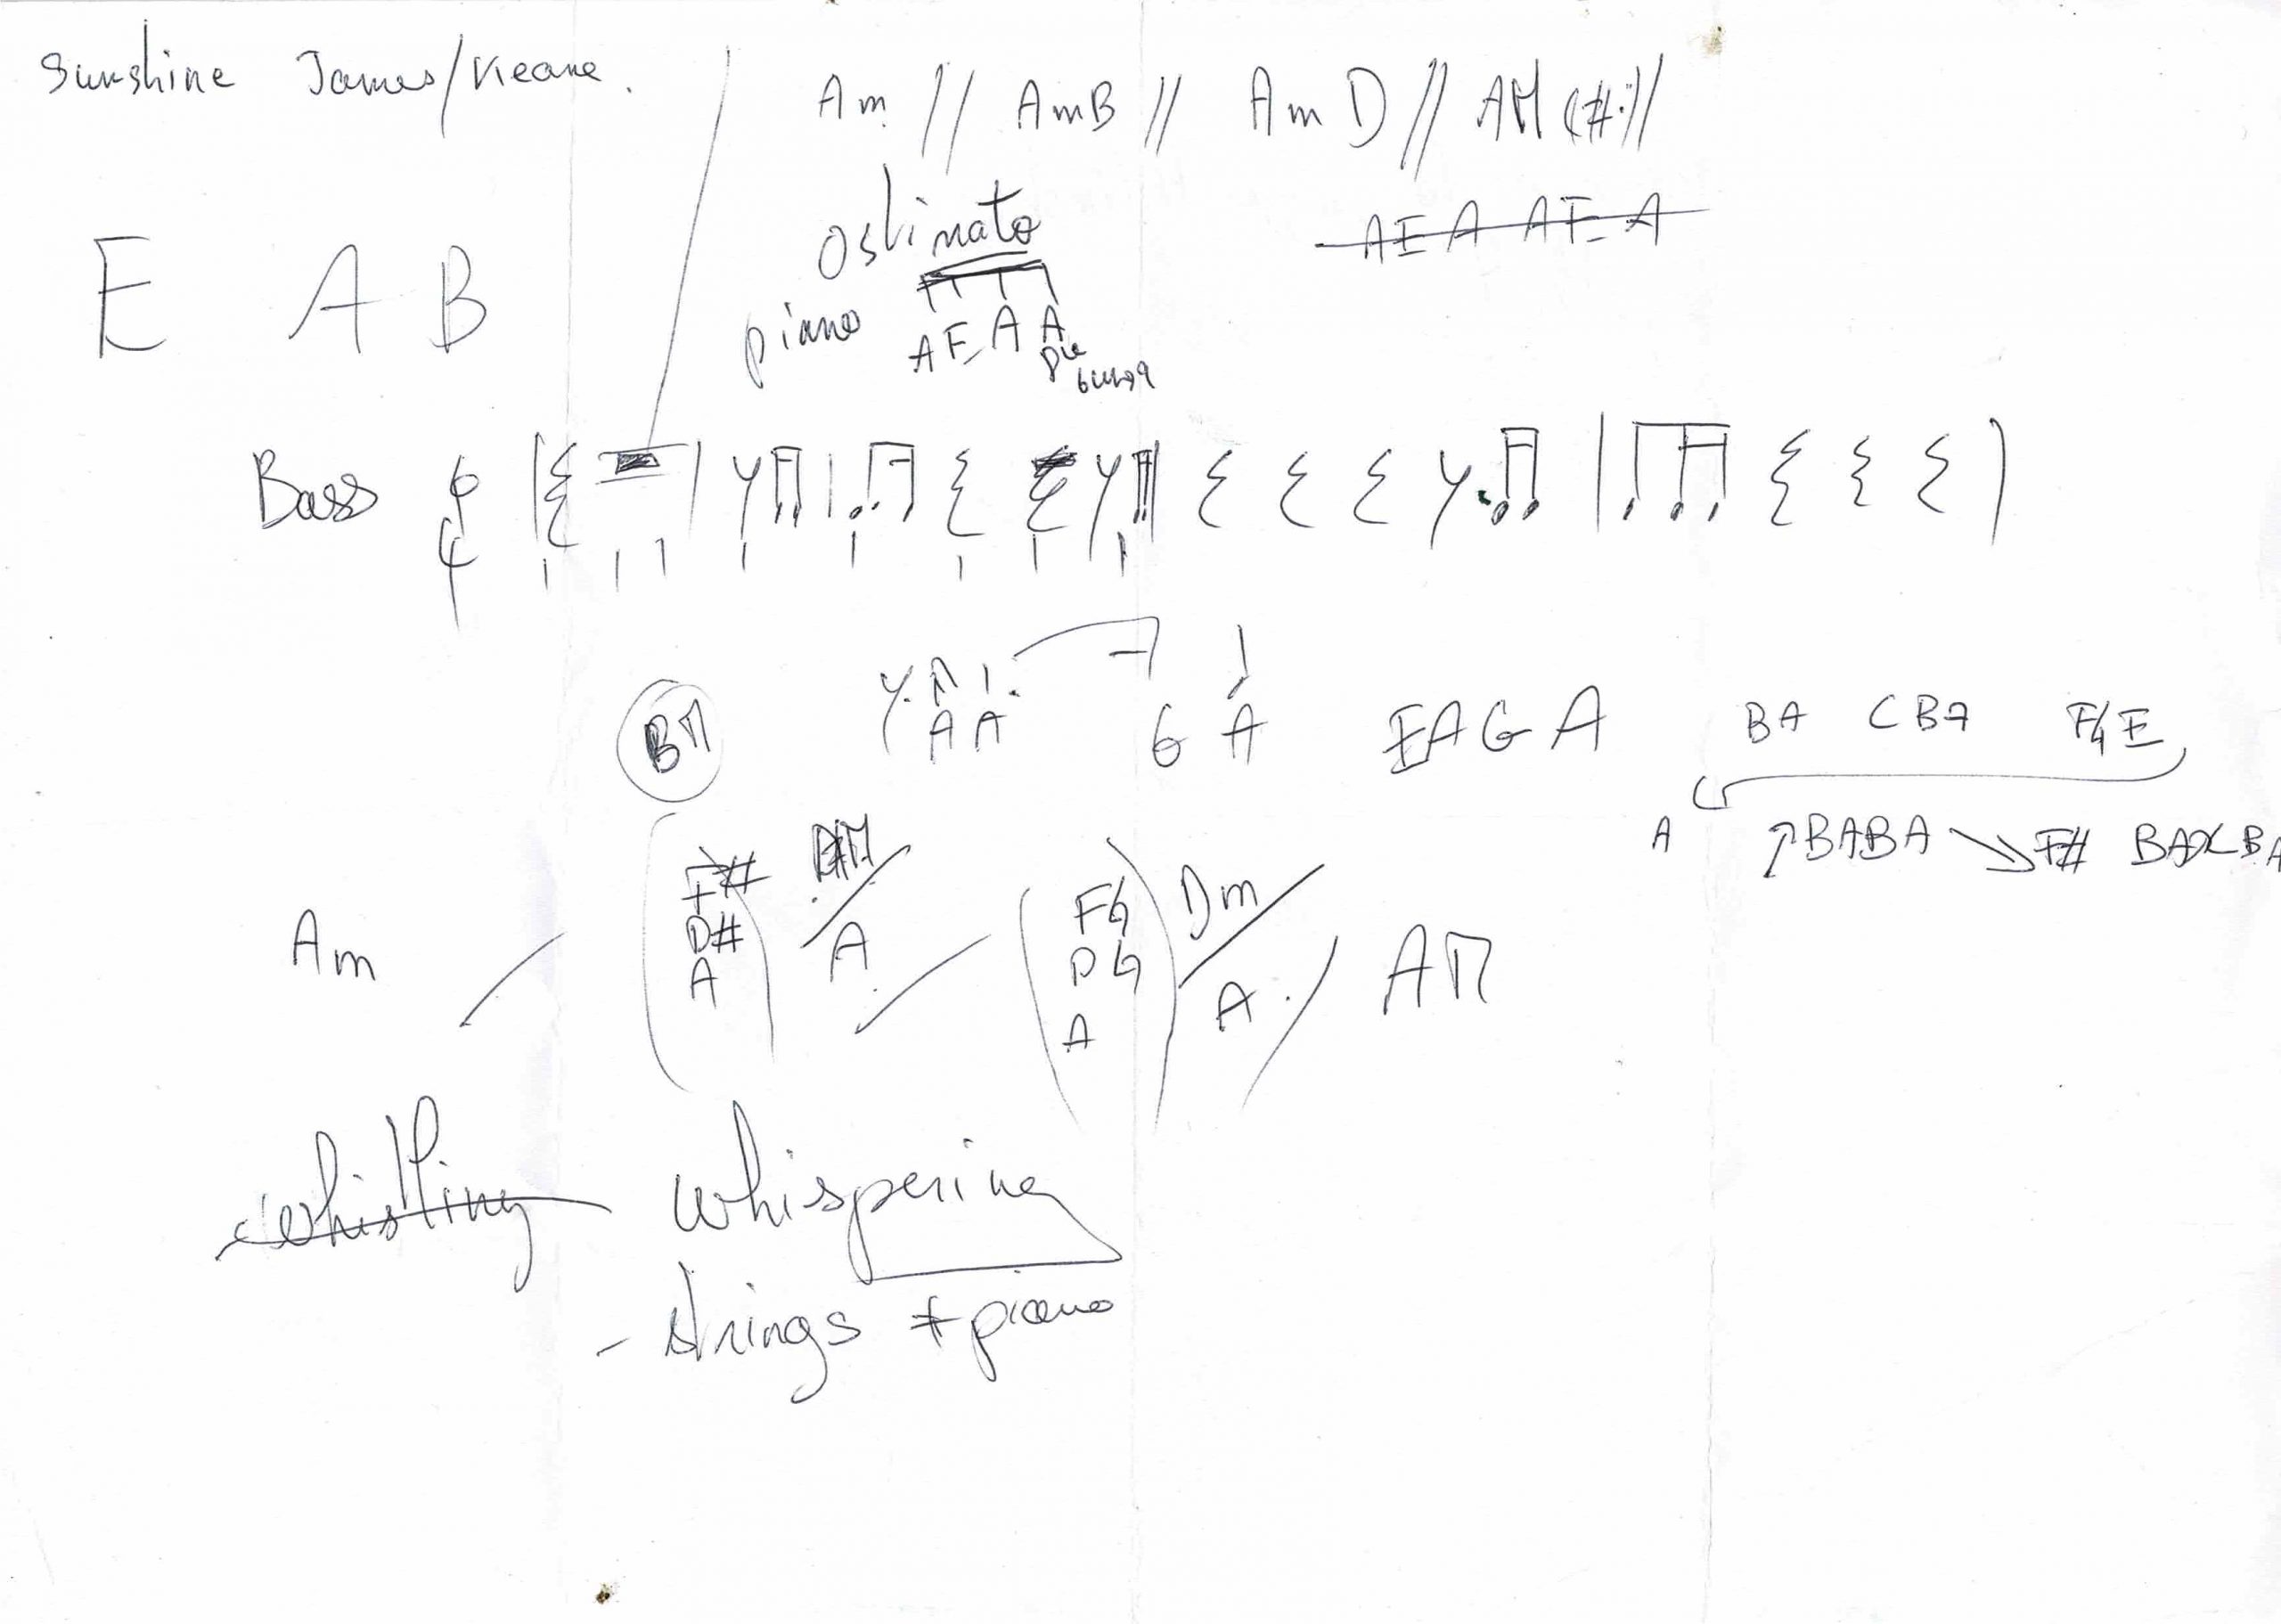 Sunshine James/Keane.
Am // AmB // Am D // AM (#) //
Ostinato
AEA AE A
E A B
piano AE A A
Bass
BM
A A G A EAGA BA CBA F♮E
A ↑BABA ↘ F# BA CBA
Am / (F# D# A) A / (F♮ D♮ A) Dm/A / AM
whistling whispering
- strings + piano